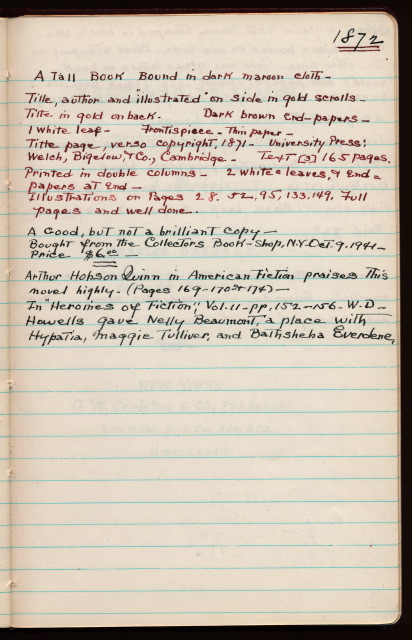 1872
A Tall Book Bound in dark maroon cloth -
Title, author and "illustrated" on side in gold scrolls -
Title in gold on back. - Dark brown end-papers -
1 white leaf - Frontispiece - Thin paper -
Title page, verso copyright, 1871 - University Press:
Welch, Bigelow, & Co., Cambridge - Text [3] 165 pages.
Printed in double columns - 2 white leaves, & End =
papers at End -
Illustrations on Pages 28. 52, 95, 133, 149, Full
pages and well done.
A Good, but not a brilliant copy -
Bought from the Collectors Book-Shop, N.Y. Oct. 9, 1941 -
Price $6.00 -
Arthur Hobson Quinn in American Fiction praises This
novel highly. - (Pages 169-170 & 174) -
In "Heroines of Fiction," Vol. 11 - pp. 152-156 - W. D -
Howells gave Nelly Beaumont, a place with
Hypatia, Maggie Tulliver, and Bathsheba Everdene,